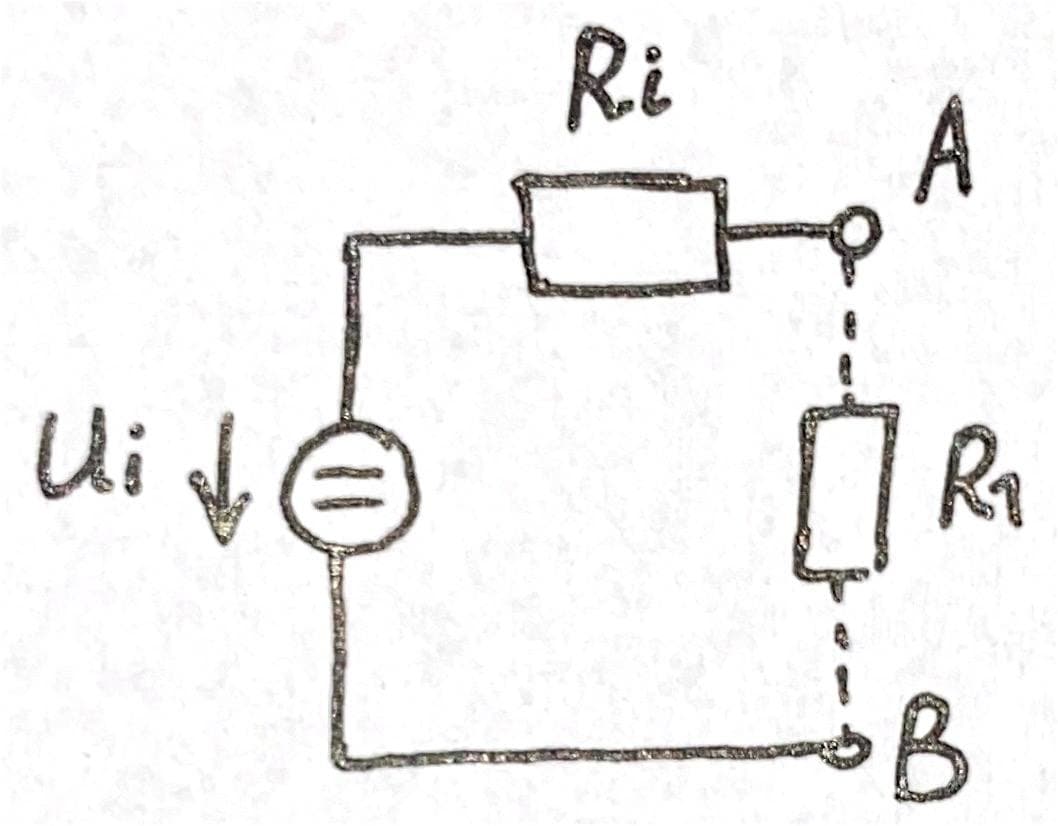 Ri
A
Ui
R1
B